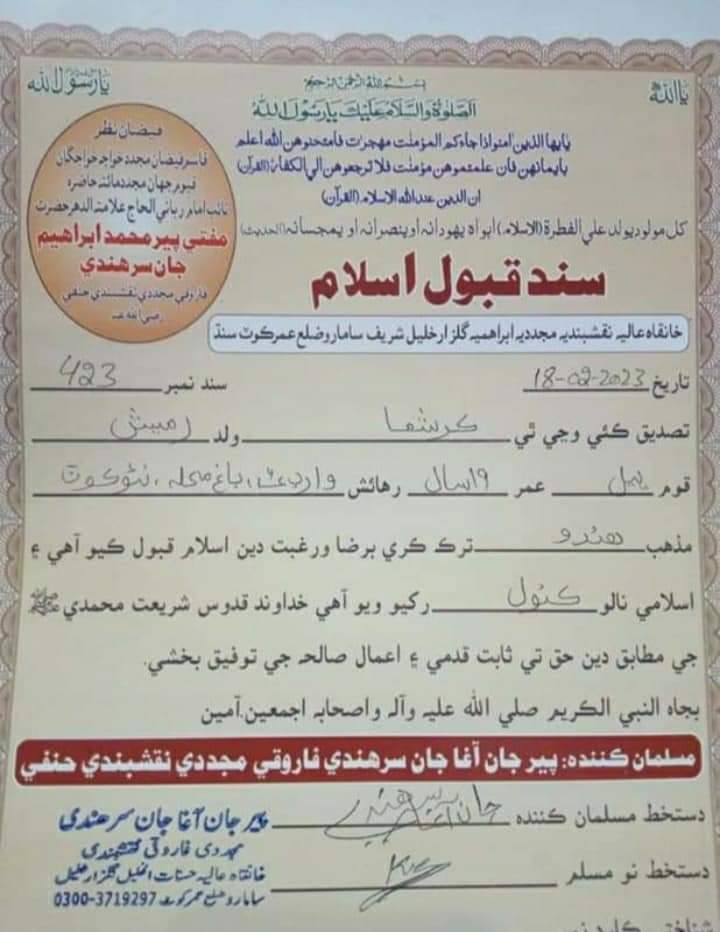 ياالله
بسم الله الرحمن الرحيم
يا رسول الله
الصلوٰة والسلام عليك يا رسول الله
يايها الذين امنوا اذا جاءكم المؤمنت مهجرات فامتحنوهن الله اعلم
بايمانهن فان علمتموهن مؤمنت فلا ترجعوهن الي الكفار (القرآن)
ان الدين عندالله الاسلام (القرآن)
كل مولود يولد علي الفطرة (الاسلام) ابواه يهودانه او ينصرانه او يمجسانه (الحديث)
فيضان نظر
قاسم فيضان مجدد خواجه خواجگان
قيوم جهان مجدد مائته حاضره
نائب امام رباني الحاج علامته الدهر حضرت
مفتي پير محمد ابراهيم
جان سرهندي
فاروقي مجددي نقشبندي حنفي
رضي الله عنه
سند قبول اسلام
خانقاه عاليه نقشبنديه مجدديه ابراهميه گلزار خليل شريف سامارو ضلع عمرکوٽ سنڌ
تاريخ 18-02-2023 سند نمبر 423
تصديق ڪئي وڃي ٿي ڪرشما ولد رميش
قوم ڀيل عمر 19 سال رهائش وارڊ ، باغ محله ، نئوڪوٽ
مذهب هندو ترڪ ڪري برضا ورغبت دين اسلام قبول ڪيو آهي ۽
اسلامي نالو ڪنول رکيو ويو آهي خداوند قدوس شريعت محمدي ﷺ
جي مطابق دين حق تي ثابت قدمي ۽ اعمال صالحه جي توفيق بخشي.
بجاه النبي الكريم صلي الله عليه وآله واصحابه اجمعين.آمين
مسلمان ڪننده: پير جان آغا جان سرهندي فاروقي مجددي نقشبندي حنفي
دستخط مسلمان ڪننده جان آغا سرهندي
پیر جان آغا جان سرھندی
مجددی فاروقی نقشبندی
دستخط نو مسلم
خانقاہ عالیہ گلزار خلیل
سامارو ضلع عمرکوٹ 0300-3719297